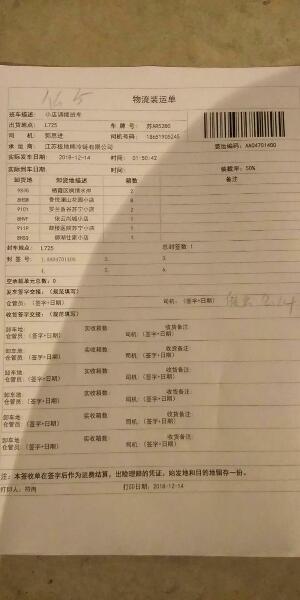 物流装运单
班车描述: 小店调拨班车
出货地点: L725 车牌号: 苏AR5280
司机: 郭恩进 司机号码: 18651905245
承运商: 江苏极地熊冷链有限公司 装运编码: AA04701400
实际发车日期: 2018-12-14 时间: 01:50:42
实际到车日期: 时间: 装载率: 50%
卸货地 卸货地描述 箱数 备注
栖霞区桐情水岸 2
8HSW 香悦澜山花园小店 8
91D1 罗兰香谷苏宁小店 2
8HVF 张云尚城小店 1
911P 鼓楼医院苏宁小店 1
8HSG 御湖佳家小店 1
封车地点: L725 总封签数: 1
封签号 1. 2. 3.
4. 5. 6.
空承载单元总数: 0
发车签字交接: (规范填写)
仓管员: (签字+日期) 司机: (签字+日期)
收货签字交接: (规范填写)
卸车地: 实收箱数: 收货备注:
仓管员: (签字+日期) 司机: (签字+日期)
卸车地 实收箱数: 收货备注:
仓管员: (签字+日期) 司机: (签字+日期)
卸车地 实收箱数: 收货备注:
仓管员: (签字+日期) 司机: (签字+日期)
卸车地 实收箱数: 收货备注:
仓管员: (签字+日期) 司机: (签字+日期)
卸车地 实收箱数: 收货备注:
仓管员: (签字+日期) 司机: (签字+日期)
卸车地 实收箱数: 收货备注:
仓管员: (签字+日期) 司机: (签字+日期)
注: 本签收单在签字后作为运费结算, 出险理赔的凭证, 始发地和目的地留存一份。
打印人: 符尚 打印日期: 2018-12-14